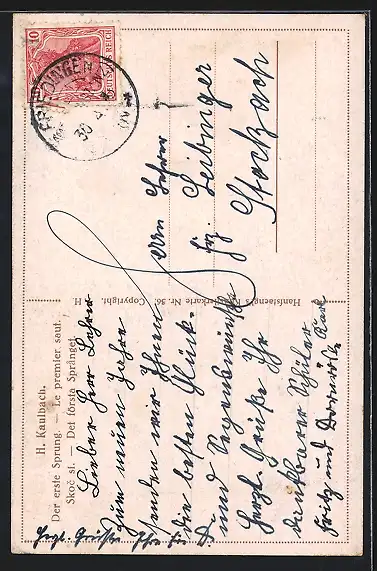 H. Kaulbach.
Der erste Sprung. — Le premier saut.
Skoč si. — Det första Språnget.
Hanfstaengl's Künstlerkarte Nr. 36. Copyright.
10
DEUTSCHES REICH
FRIEDINGEN
30
An Lehrer
Leibinger
Stockach
Lieber Herr Lehrer
Zum neuen Jahre
senden wir Ihnen
die besten Glück-
und Segenswünsche
Herzl. Grüße Ihr
dankbarer Schüler
Fritz und
Herzl. Grüße